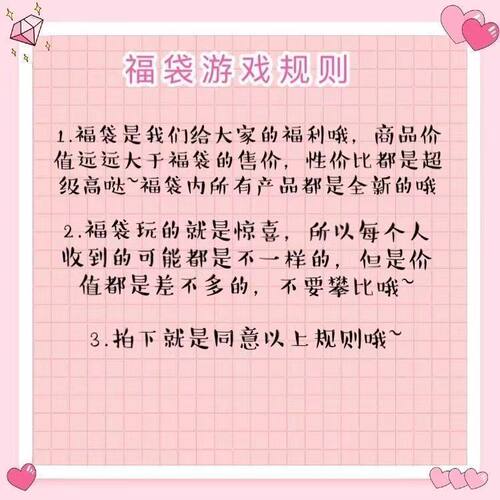 福袋游戏规则
1.福袋是我们给大家的福利哦，商品价
值远远大于福袋的售价，性价比都是超
级高哒~福袋内所有产品都是全新的哦
2.福袋玩的就是惊喜，所以每个人
收到的可能都是不一样的，但是价
值都是差不多的，不要攀比哦~
3.拍下就是同意以上规则哦~